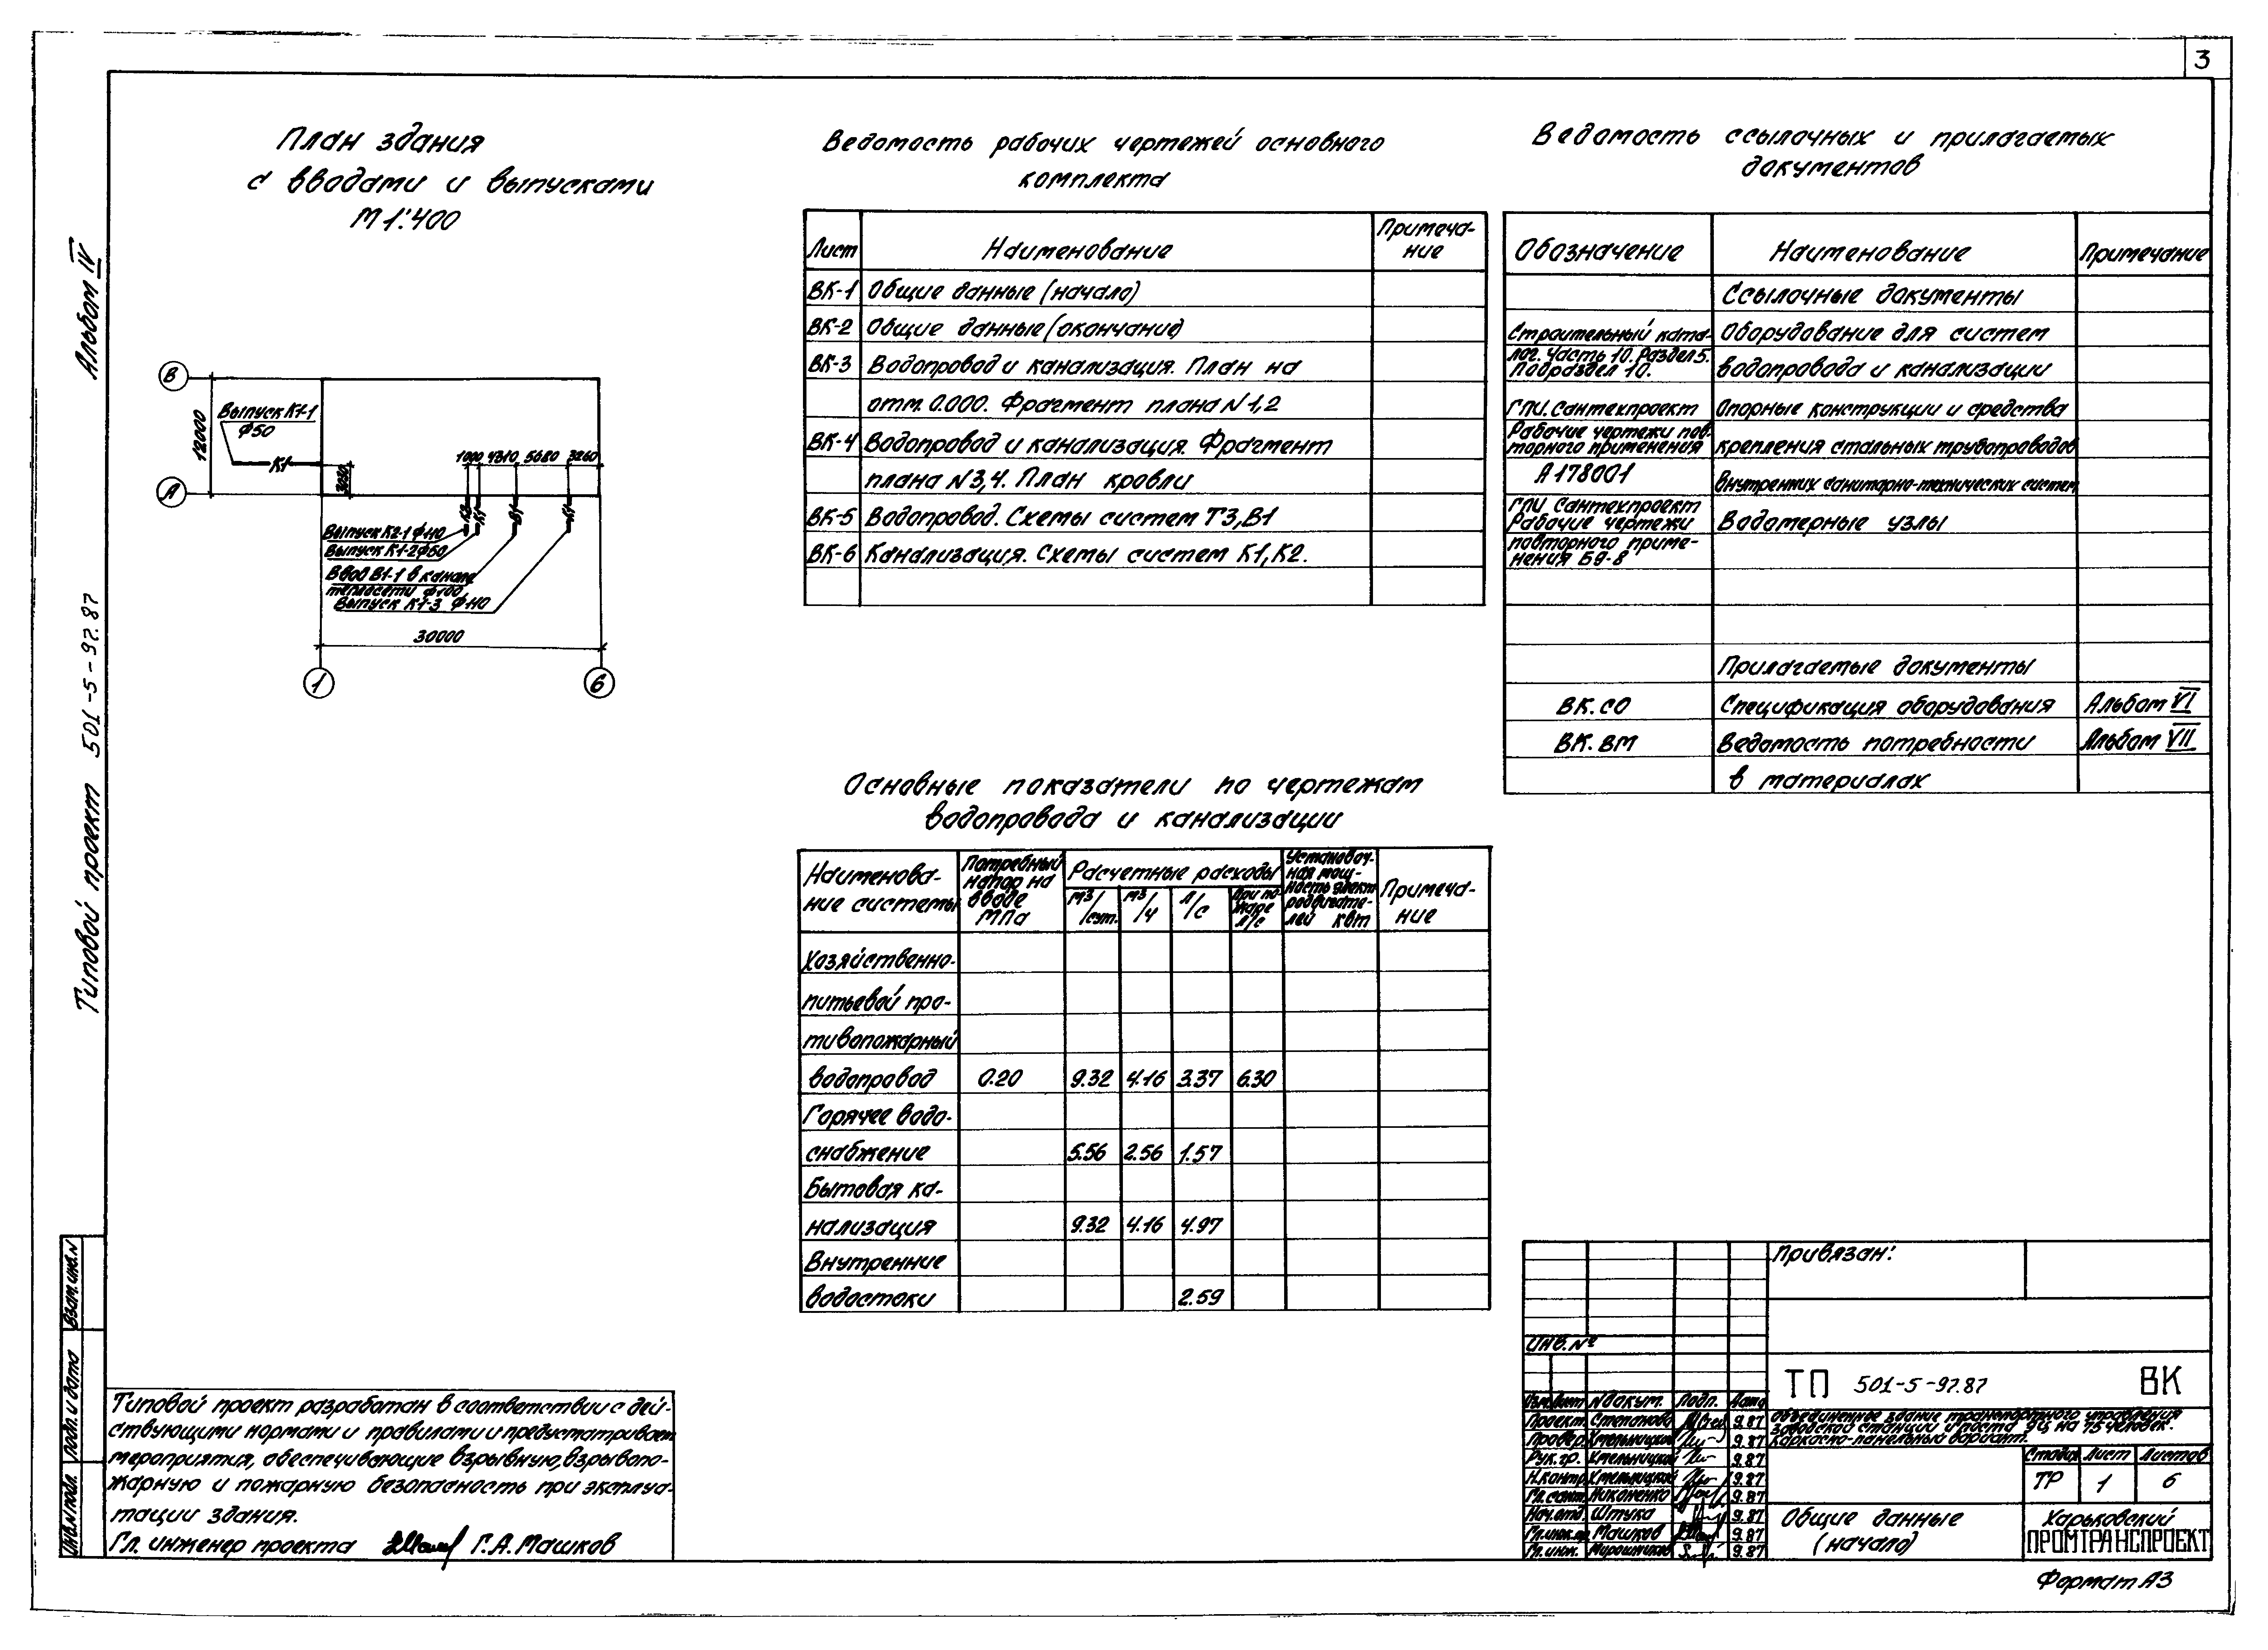 3
Альбом IV
Типовой проект 501-5-97.87
План здания
с вводами и выпусками
М 1:400
В
А
12000
Выпуск К1-1
Ф50
К1
3030
1000 4310 5680 3260
К2 К1 В1 К1
Выпуск К2-1 Ф110
Выпуск К1-2 Ф50
Ввод В1-1 в канале
теплосети Ф100
Выпуск К1-3 Ф110
30000
1
6
Ведомость рабочих чертежей основного
комплекта
Лист Наименование Примеча-
ние
ВК-1 Общие данные (начало)
ВК-2 Общие данные (окончание)
ВК-3 Водопровод и канализация. План на
отм. 0.000. Фрагмент плана N 1,2
ВК-4 Водопровод и канализация. Фрагмент
плана N3,4. План кровли
ВК-5 Водопровод. Схемы систем Т3, В1
ВК-6 Канализация. Схемы систем К1, К2.
Ведомость ссылочных и прилагаемых
документов
Обозначение Наименование Примечание
Ссылочные документы
Строительный ката- Оборудование для систем
лог. Часть 10. Раздел 5. водопровода и канализации
Подраздел 10.
ГПИ. Сантехпроект Опорные конструкции и средства
Рабочие чертежи пов- крепления стальных трубопроводов
торного применения
А178001 внутренних санитарно-технических систем
ГПИ Сантехпроект
Рабочие чертежи Водомерные узлы
повторного приме-
нения Б9-8
Прилагаемые документы
ВК.СО Спецификация оборудования Альбом VI
ВК.ВМ Ведомость потребности Альбом VII
в материалах
Основные показатели по чертежам
водопровода и канализации
Наименова-
ние системы
Потребный
напор на
вводе
МПа
Расчетные расходы
м³/сут. м³/ч л/с
При по-
жаре
л/с
Установоч-
ная мощ-
ность элект
родвигате-
лей квт
Примеча-
ние
Хозяйственно-
питьевой про-
тивопожарный
водопровод 0.20 9.32 4.16 3.37 6.30
Горячее водо-
снабжение 5.56 2.56 1.57
Бытовая ка-
нализация 9.32 4.16 4.97
Внутренние
водостоки 2.59
Типовой проект разработан в соответствии с дей-
ствующими нормами и правилами и предусматривает
мероприятия, обеспечивающие взрывную, взрывопо-
жарную и пожарную безопасность при эксплуа-
тации здания.
Гл. инженер проекта Г.А. Машков
Взам. инв. N
Подп. и дата
Инв. N подл.
Привязан:
Инв. №
ТП 501-5-97.87 ВК
Изм. Лист N докум. Подп. Дата
Проект. Степанова 9.87
Провер. Хмельницкая 9.87
Рук. гр. Хмельницкая 9.87
Н.контр. Хмельницкая 9.87
Гл. сант. Никоненко 9.87
Нач. отд. Штука 9.87
Гл. инж. пр. Машков 9.87
Гл. инж. Мирошников 9.87
Объединенное здание транспортного управления
заводской станции и поста ЭЦ на 75 человек.
Каркасно-панельный вариант.
Стадия Лист Листов
ТР 1 6
Общие данные
(начало)
Харьковский
ПРОМТРАНСПРОЕКТ
Формат А3